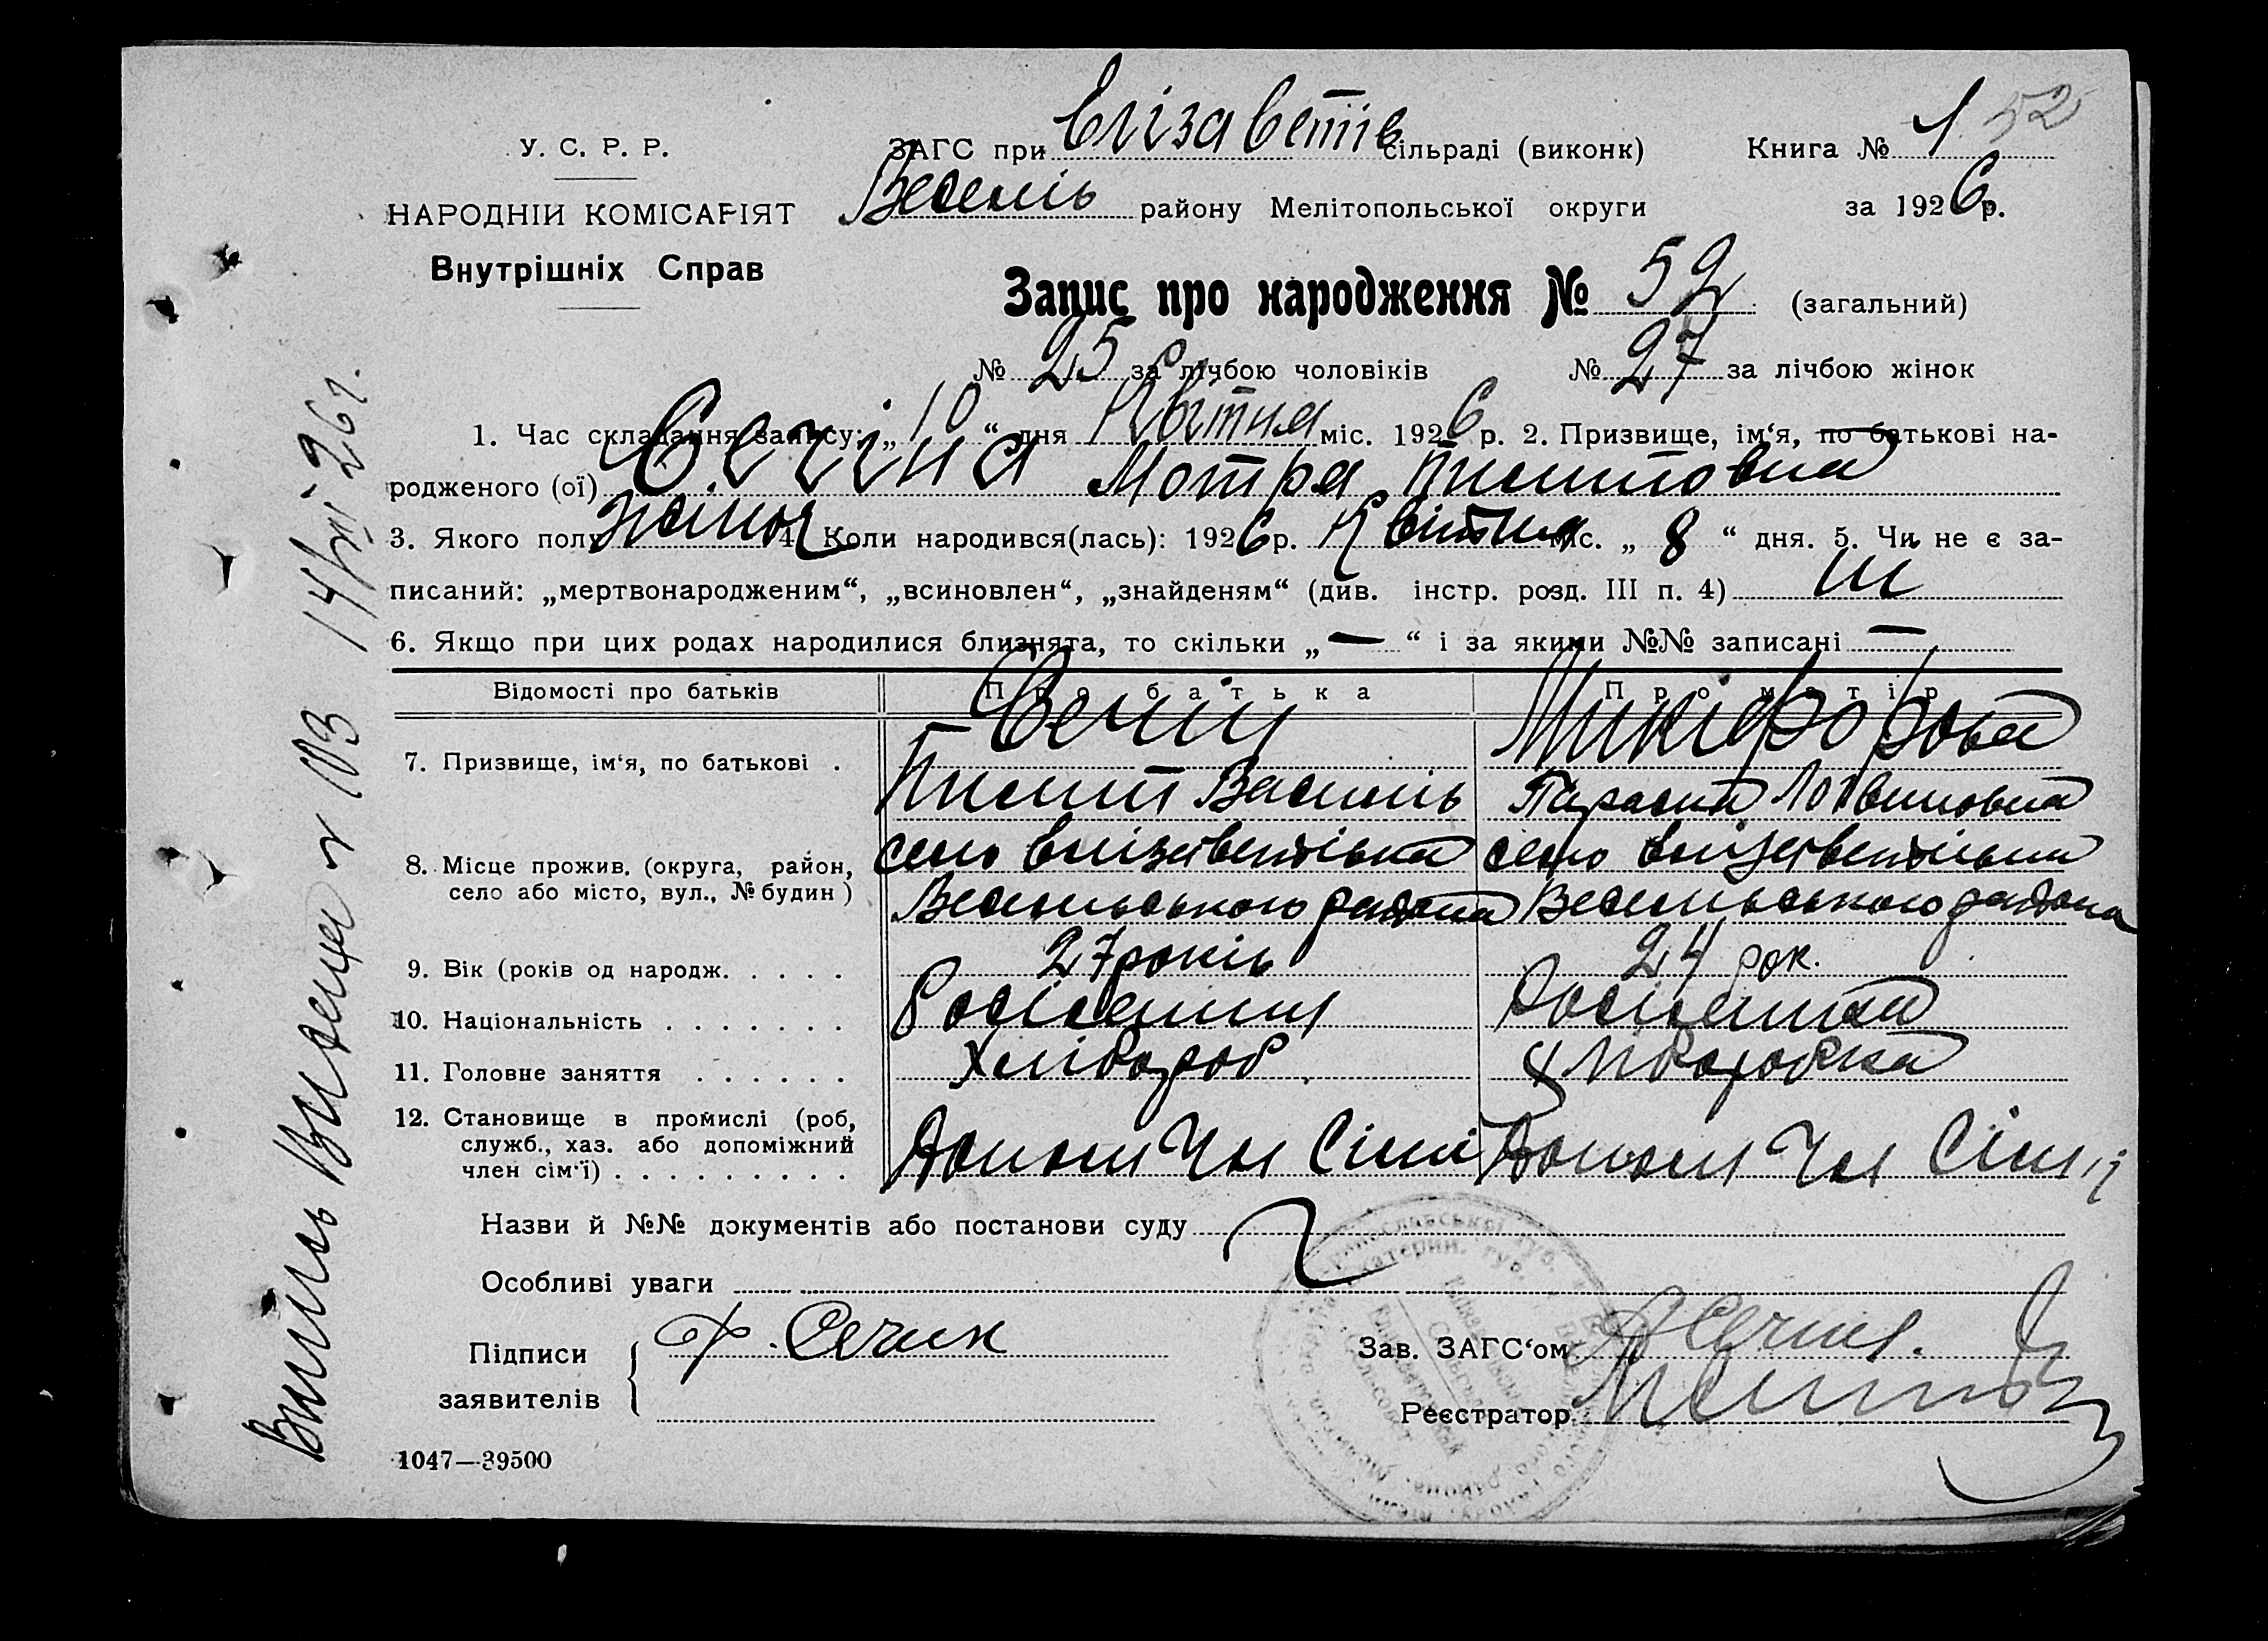 У. С. Р. Р.
НАРОДНІЙ КОМІСАРІЯТ
Внутрішніх Справ
ЗАГС при Єлізаветів сільраді (виконк)
Веселів району Мелітопольської округи
Книга № 1 52
за 1926 р.
Запис про народження № 52 (загальний)
№ 25 за лічбою чоловіків № 27 за лічбою жінок
1. Час складання запису: „10“ дня Квітня міс. 1926 р. 2. Призвище, ім‘я, по батькові на-
родженого (ої) Сечіна Мотря
3. Якого полу жіноч 4. Коли народився(лась): 1926 р. Квітня міс. „8“ дня. 5. Чи не є за-
писаний: „мертвонародженим“, „всиновлен“, „знайденям“ (див. інстр. розд. III п. 4) ні
6. Якщо при цих родах народилися близнята, то скільки „—“ і за якими №№ записані —
Відомості про батьків Про батька Про матір
7. Призвище, ім‘я, по батькові . Сечін Микіфорова
Василів Параска Логвиновна
8. Місце прожив. (округа, район, село або місто, вул., № будин) село Єлізаветівка село Єлізаветівка
Веселівського району Веселівського району
9. Вік (років од народж. . . . . 27 років 24 рок.
10. Національність . . . . . . . Росіянин Росіянка
11. Головне заняття . . . . . . Хлібороб Хліборобка
12. Становище в промислі (роб, служб., хаз. або допоміжний член сім‘ї) . . . . . . . . . Допом Чл Сімї Допом Чл Сімї
Назви й №№ документів або постанови суду
Особливі уваги
Підписи заявителів Ф. Сечин
Зав. ЗАГС‘ом Сечин.
Реєстратор
1047—39500
14/VII 26 г.